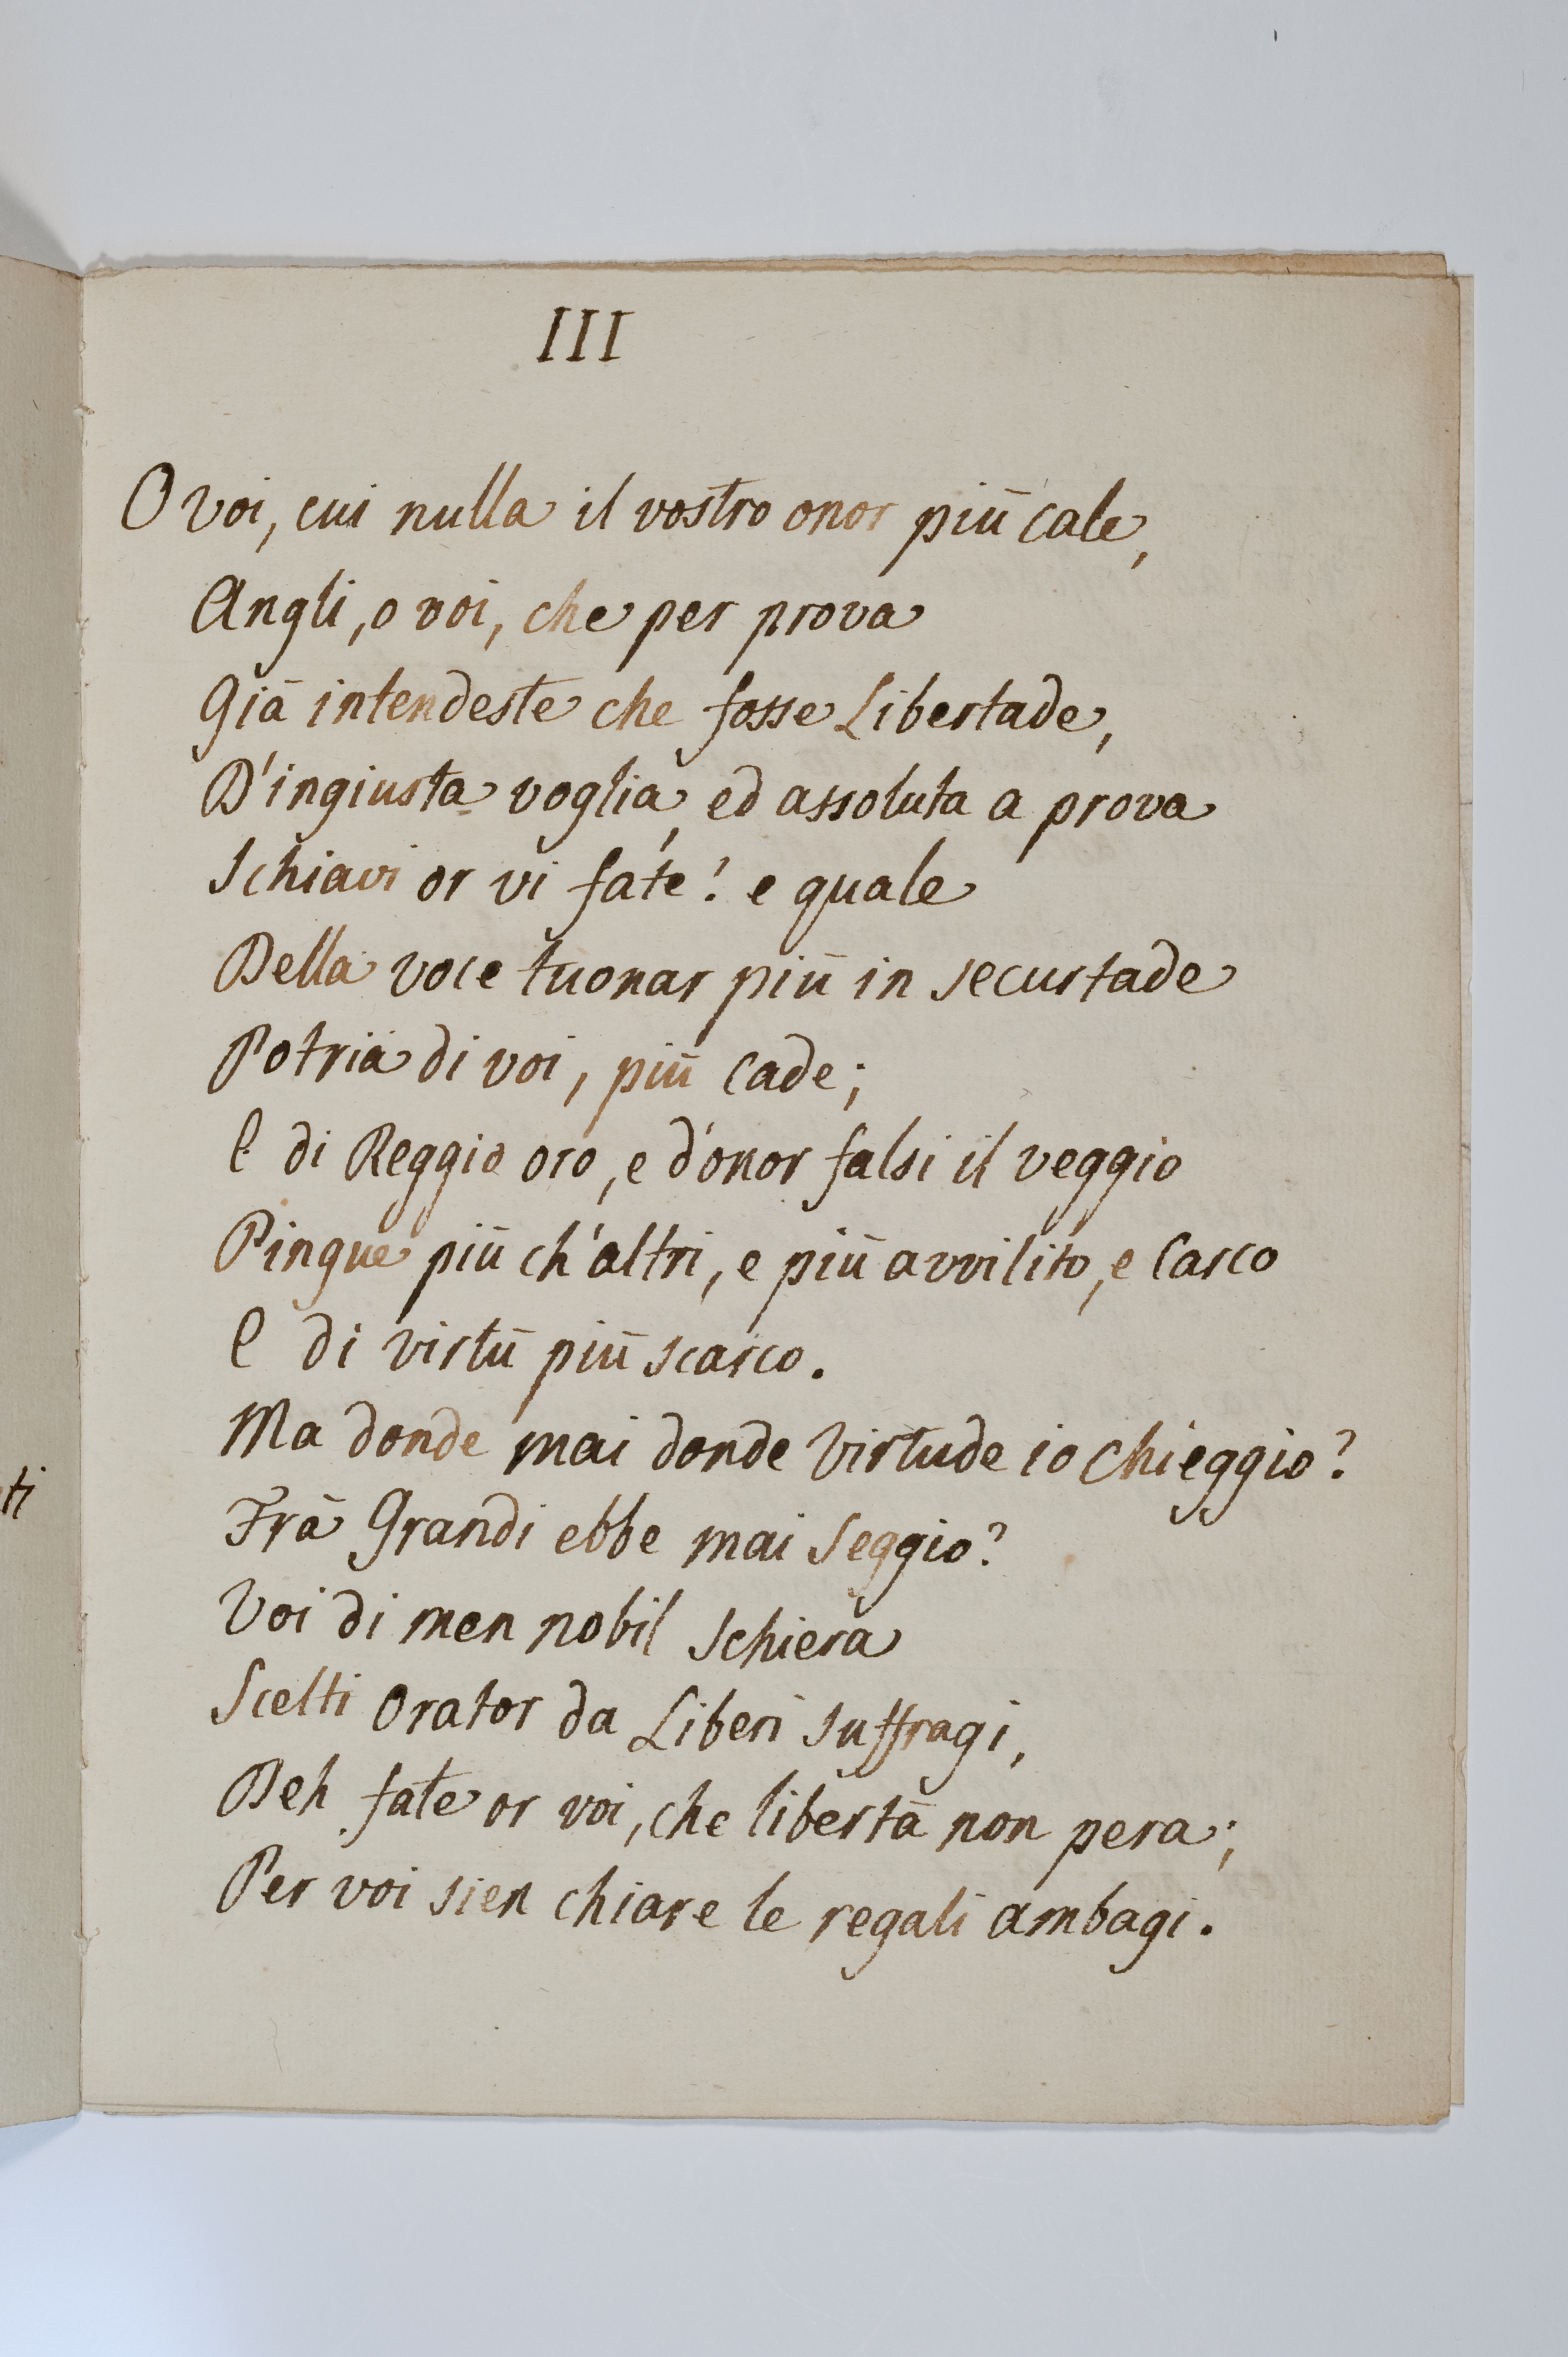 III
O voi, cui nulla il vostro onor più cale,
Angli, o voi, che per prova
Già intendeste che fosse Libertade,
D'ingiusta voglia, ed assoluta a prova
Schiavi or vi fate! e quale
Della voce tuonar più in securtade
Potria di voi, più cade;
E di Reggio oro, e d'onor falsi il veggio
Pingue più ch'altri, e più avvilito, e carco
E di virtù più scarco.
Ma donde mai donde Virtude io chieggio?
Frà Grandi ebbe mai Seggio?
Voi di men nobil Schiera
Scelti Orator da Liberi suffragi,
Deh fate or voi, che libertà non pera;
Per voi sien chiare le regali ambagi.
ti